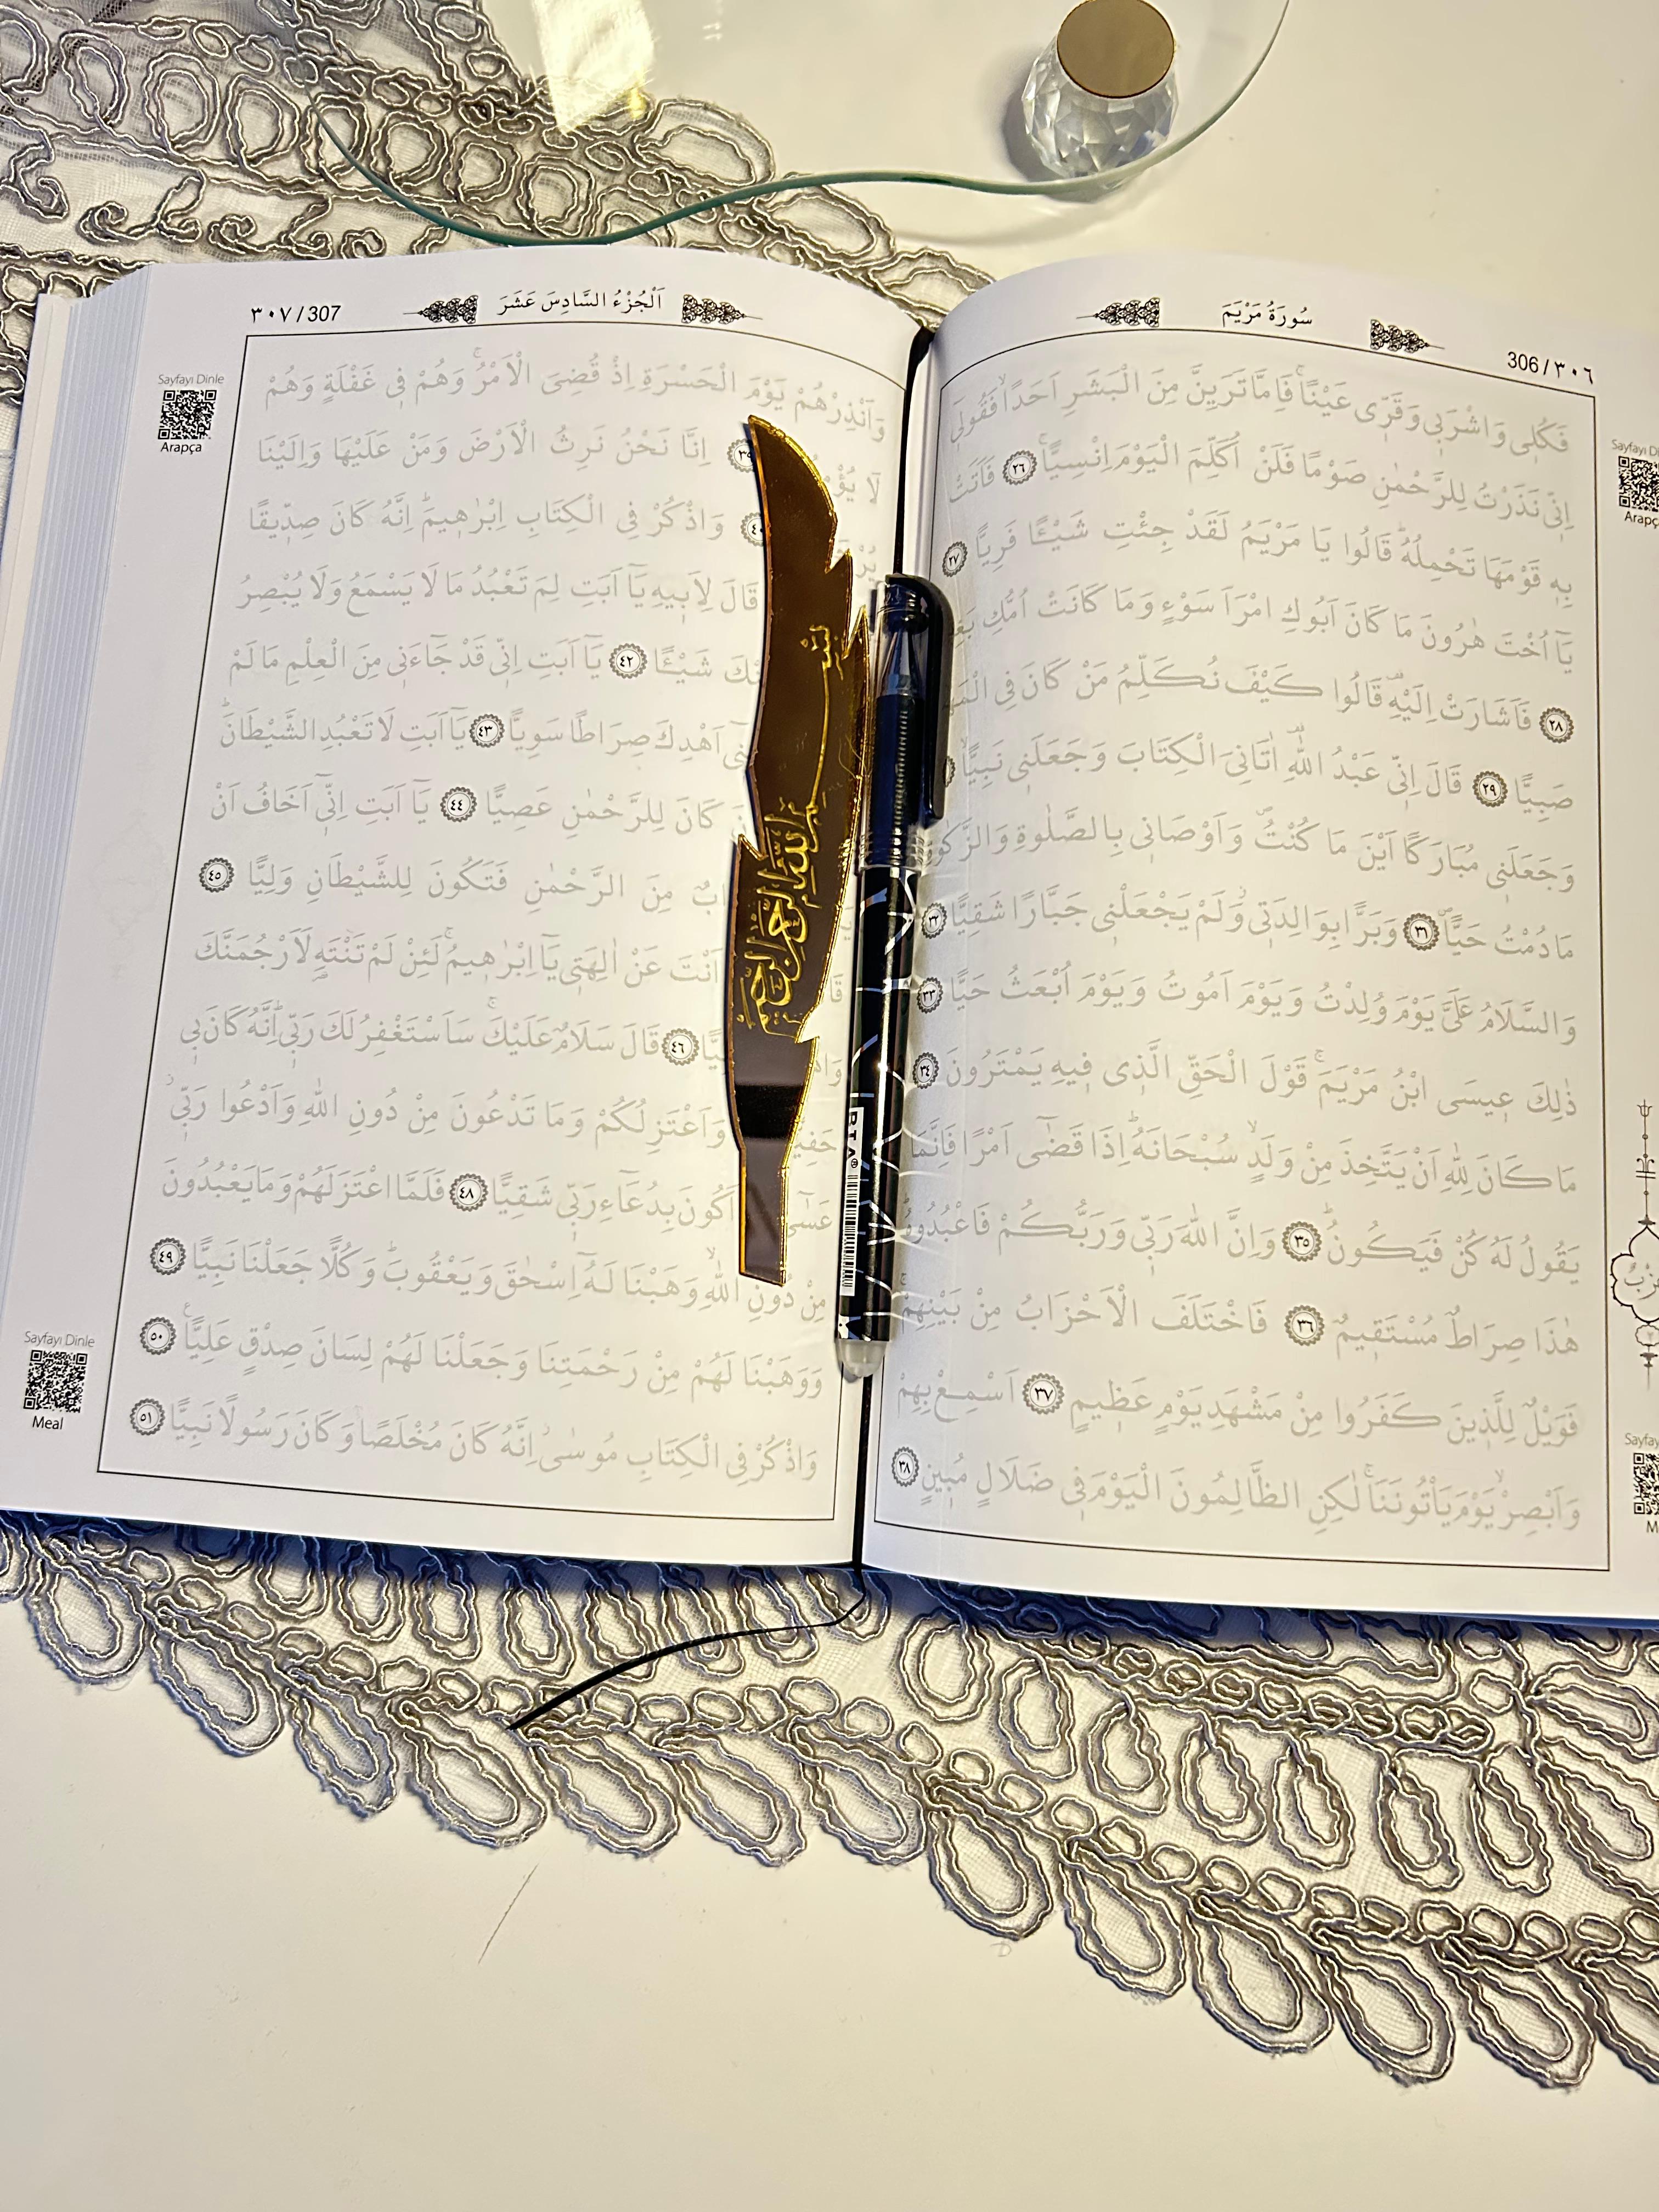 سُورَةُ مَرْيَمَ
306 / ٣٠٦
Sayfayı
Arapça
فَكُلِى وَاشْرَبِى وَقَرِّى عَيْنًاۚ فَاِمَّا تَرَيِنَّ مِنَ الْبَشَرِ اَحَدًاۙ فَقُولِٓى
اِنِّى نَذَرْتُ لِلرَّحْمٰنِ صَوْمًا فَلَنْ اُكَلِّمَ الْيَوْمَ اِنْسِيًّاۚ ٢٦ فَاَتَتْ
بِهٖ قَوْمَهَا تَحْمِلُهُؕ قَالُوا يَا مَرْيَمُ لَقَدْ جِئْتِ شَيْـًٔا فَرِيًّا ٢٧
يَٓا اُخْتَ هٰرُونَ مَا كَانَ اَبُوكِ امْرَاَ سَوْءٍ وَمَا كَانَتْ اُمُّكِ
٢٨ فَاَشَارَتْ اِلَيْهِؕ قَالُوا كَيْفَ نُكَلِّمُ مَنْ كَانَ فِى
صَبِيًّا ٢٩ قَالَ اِنِّى عَبْدُ اللّٰهِؕ اٰتَانِىَ الْكِتَابَ وَجَعَلَنِى نَبِيًّاۙ
وَجَعَلَنِى مُبَارَكًا اَيْنَ مَا كُنْتُۖ وَاَوْصَانِى بِالصَّلٰوةِ وَالزَّكٰوةِ
مَا دُمْتُ حَيًّاۖ ٣١ وَبَرًّا بِوَالِدَتِىۘ وَلَمْ يَجْعَلْنِى جَبَّارًا شَقِيًّا ٣٢
وَالسَّلَامُ عَلَىَّ يَوْمَ وُلِدْتُ وَيَوْمَ اَمُوتُ وَيَوْمَ اُبْعَثُ حَيًّا ٣٣
ذٰلِكَ عِيسَى ابْنُ مَرْيَمَۚ قَوْلَ الْحَقِّ الَّذِى فِيهِ يَمْتَرُونَ ٣٤
مَا كَانَ لِلّٰهِ اَنْ يَتَّخِذَ مِنْ وَلَدٍۙ سُبْحَانَهُؕ اِذَا قَضٰٓى اَمْرًا فَاِنَّمَا
يَقُولُ لَهُ كُنْ فَيَكُونُؕ ٣٥ وَاِنَّ اللّٰهَ رَبِّى وَرَبُّكُمْ فَاعْبُدُوهُؕ
هٰذَا صِرَاطٌ مُسْتَقِيمٌ ٣٦ فَاخْتَلَفَ الْاَحْزَابُ مِنْ بَيْنِهِمْۚ
فَوَيْلٌ لِلَّذِينَ كَفَرُوا مِنْ مَشْهَدِ يَوْمٍ عَظِيمٍ ٣٧ اَسْمِعْ بِهِمْ
وَاَبْصِرْۙ يَوْمَ يَأْتُونَنَاۚ لٰكِنِ الظَّالِمُونَ الْيَوْمَ فِى ضَلَالٍ مُبِينٍ ٣٨
اَلْجُزْءُ السَّادِسَ عَشَرَ
٣٠٧ / 307
Sayfayı Dinle
Arapça
وَاَنْذِرْهُمْ يَوْمَ الْحَسْرَةِ اِذْ قُضِىَ الْاَمْرُۚ وَهُمْ فِى غَفْلَةٍ وَهُمْ
لَا ٣٩ اِنَّا نَحْنُ نَرِثُ الْاَرْضَ وَمَنْ عَلَيْهَا وَاِلَيْنَا
وَاذْكُرْ فِى الْكِتَابِ اِبْرٰهِيمَؕ اِنَّهُ كَانَ صِدِّيقًا
قَالَ لِاَبِيهِ يَٓا اَبَتِ لِمَ تَعْبُدُ مَا لَا يَسْمَعُ وَلَا يُبْصِرُ
شَيْـًٔا ٤٢ يَٓا اَبَتِ اِنِّى قَدْ جَٓاءَنِى مِنَ الْعِلْمِ مَا لَمْ
اَهْدِكَ صِرَاطًا سَوِيًّا ٤٣ يَٓا اَبَتِ لَا تَعْبُدِ الشَّيْطَانَؕ
كَانَ لِلرَّحْمٰنِ عَصِيًّا ٤٤ يَٓا اَبَتِ اِنِّٓى اَخَافُ اَنْ
مِنَ الرَّحْمٰنِ فَتَكُونَ لِلشَّيْطَانِ وَلِيًّا ٤٥
اَنْتَ عَنْ اٰلِهَتِى يَٓا اِبْرٰهِيمُۚ لَئِنْ لَمْ تَنْتَهِ لَاَرْجُمَنَّكَ
٤٦ قَالَ سَلَامٌ عَلَيْكَۚ سَاَسْتَغْفِرُ لَكَ رَبِّىؕ اِنَّهُ كَانَ بِى
وَاَعْتَزِلُكُمْ وَمَا تَدْعُونَ مِنْ دُونِ اللّٰهِ وَاَدْعُوا رَبِّىۘ
عَسٰٓى اَكُونَ بِدُعَٓاءِ رَبِّى شَقِيًّا ٤٨ فَلَمَّا اعْتَزَلَهُمْ وَمَا يَعْبُدُونَ
مِنْ دُونِ اللّٰهِۙ وَهَبْنَا لَهُٓ اِسْحٰقَ وَيَعْقُوبَؕ وَكُلًّا جَعَلْنَا نَبِيًّا ٤٩
وَوَهَبْنَا لَهُمْ مِنْ رَحْمَتِنَا وَجَعَلْنَا لَهُمْ لِسَانَ صِدْقٍ عَلِيًّا ٥٠
وَاذْكُرْ فِى الْكِتَابِ مُوسٰىۘ اِنَّهُ كَانَ مُخْلَصًا وَكَانَ رَسُولًا نَبِيًّا ٥١
Sayfayı Dinle
Meal
بِسْمِ اللّٰهِ الرَّحْمٰنِ الرَّحِيمِ